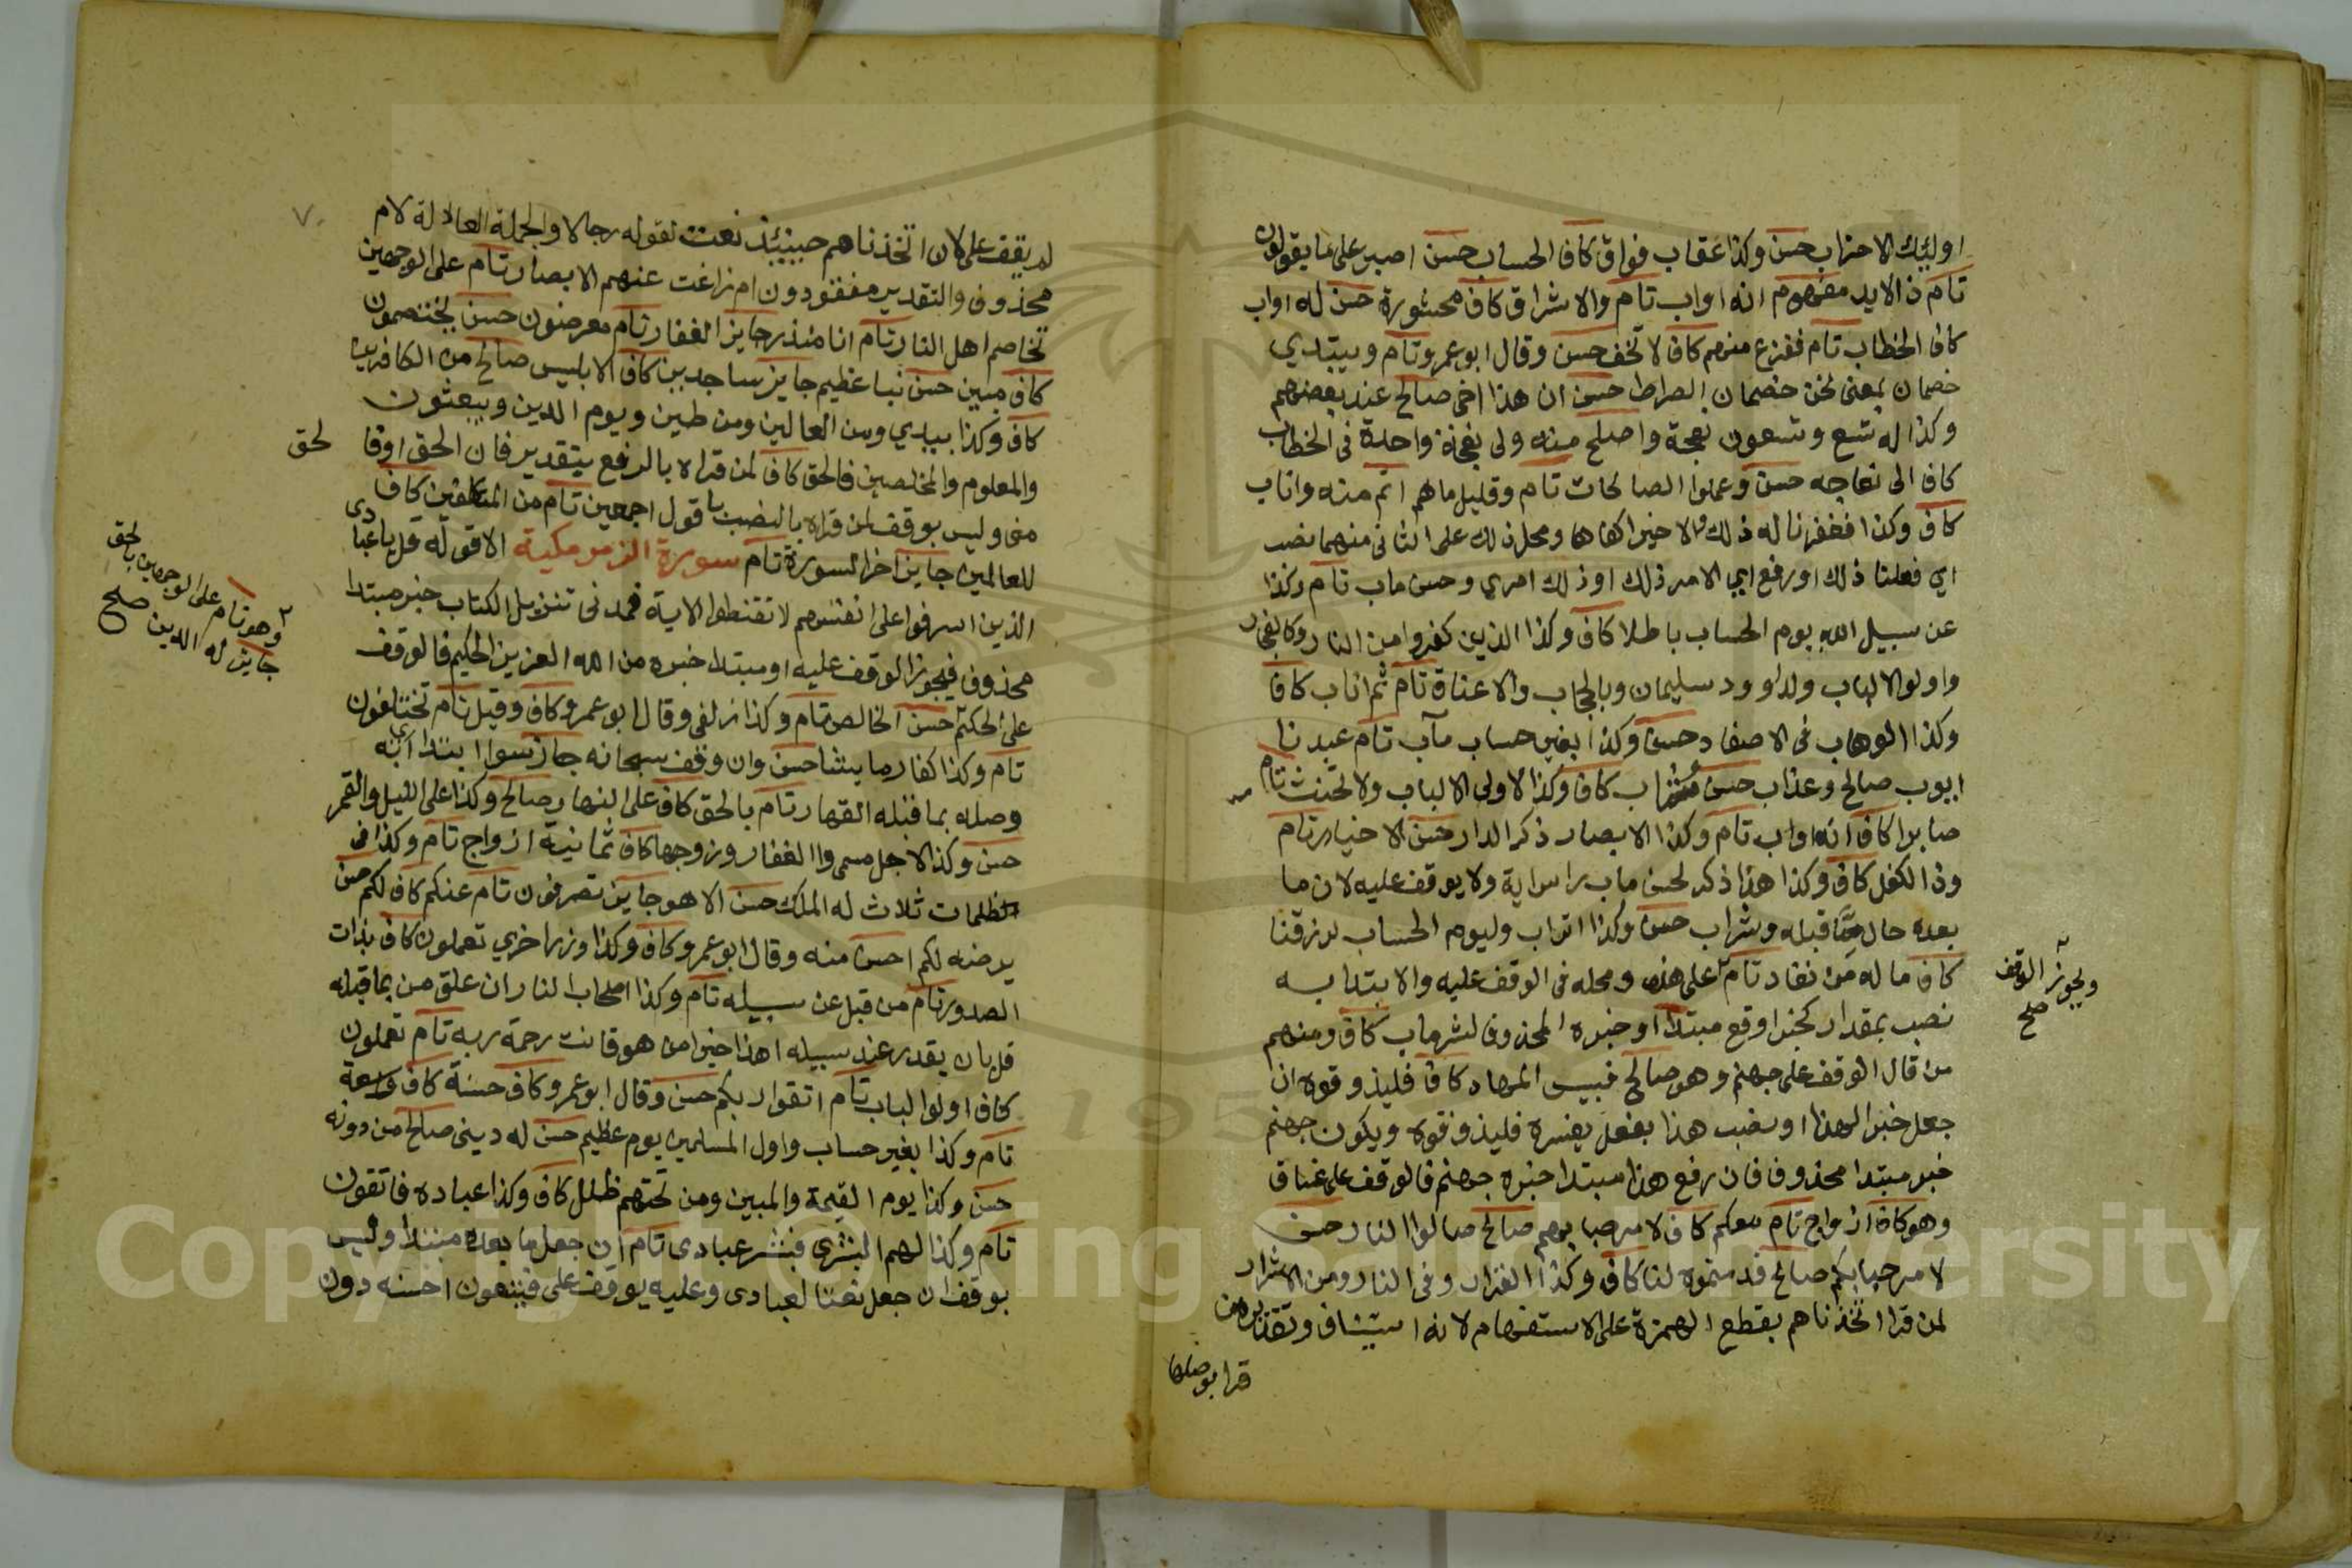 اوليك الاحزاب حسن وكذا عقاب فواق كاف الحساب حسن اصبر على ما يقولون
تام ذا الايد مفهوم انه اواب تام والاشراق كاف محشورة حسن له اواب
كاف الخطاب تام ففزع منهم كاف لا تخف حسن وقال ابو عمرو تام ويبتدي
خصمان بمعنى نحن خصمان الصراط حسن ان هذا اخي صالح عند بعضهم
وكذا له تسع وتسعون نعجة واصلح منه ولي نعجة واحدة في الخطاب
كاف الى نعاجه حسن وعملوا الصالحات تام وقليل ماهم اتم منه واناب
كاف وكذا فغفرنا له ذلك والاخير اكفاها ومحل ذلك على الثاني منهما نصب
اي فعلنا ذلك او رفع اي الامر ذلك او ذلك امري وحسن ماب تام وكذا
عن سبيل الله يوم الحساب باطلا كاف وكذا الذين كفروا من النار وكالفجار
واولوا الالباب ولداوود سليمان وبالحجاب والاعناق تام ثم اناب كاف
وكذا الوهاب في الاصفاد حسن وكذا بغير حساب مآب تام عبدنا
ايوب صالح وعذاب حسن وشراب كاف وكذا لاولي الالباب ولا تحنث تام
صابرا كاف انه اواب تام وكذا الابصار ذكر الدار حسن الاخيار تام
وذا الكفل كاف وكذا هذا ذكر لحسن ماب راس اية ولا يوقف عليه لان ما
بعده حال مما قبله وشراب حسن وكذا اتراب وليوم الحساب لرزقنا
كاف ما له من نفاد تام على هذا ومحله في الوقف عليه والابتدا به
ويجوز الوقف
صح
نصب بمقدار كخبر اوقع مبتدا او خبره المحذوف لشر ماب كاف ومنهم
من قال الوقف على جهنم وهو صالح فبيس المهاد كاف فليذوقوه ان
جعل خبر الهذا او نصب هذا بفعل يفسره فليذوقوه ويكون جهنم
خبر مبتدا محذوفا فان رفع هذا مبتدا خبره جهنم فالوقف على غساق
وهو كاف ازواج تام معكم كاف لا مرحبا بهم صالح صالوا النار حسن
لا مرحبا بكم صالح قدمتموه لنا كاف وكذا القرار وفي النار ومن الاشرار
لمن قرا اتخذناهم بقطع الهمزة على الاستفهام لانه استيناف وتقدير ومن
قرا بوصلها
لم يقف على لان اتخذناهم حينئذ نعت لقوله رجالا والجملة العادلة لام
محذوف والتقدير مفقودون ام زاغت عنهم الابصار تام على الوجهين
تخاصم اهل النار تام انا منذر جايز الغفار تام معرضون حسن يختصمون
كاف مبين حسن نبا عظيم جايز ساجدين كاف الا ابليس صالح من الكافرين
كاف وكذا بيدي ومن العالين ومن طين ويوم الدين ويبعثون
والمعلوم والمخلصين فالحق كاف لمن قراه بالرفع بتقدير فان الحق او فا لحق
مني وليس بوقف لمن قراه بالنصب باقول اجمعين تام من المتكلفين كاف
للعالمين جايز اخر السورة تام سورة الزمر مكية الا قوله قل يا عبادى
الذين اسرفوا على انفسهم لا تقنطوا الاية فمدني تنزيل الكتاب خبر مبتدا
محذوف فيجوز الوقف عليه او مبتدا خبره من الله العزيز الحكيم فالوقف
وهو تام على الوجهين بالحق
جايز له الدين صح
على الحكيم حسن الخالص تام وكذا زلفى وقال ابو عمرو كاف وقيل تام تختلفون
تام وكذا كفار ما يشا حسن وان وقف سبحانه جاز سوا ابتدا ابه
وصله بما قبله القهار تام بالحق كاف على النهار صالح وكذا على الليل والقمر
حسن وكذا لاجل مسمى والغفار وزوجها كاف ثمانية ازواج تام وكذا في
ظلمات ثلاث له الملك حسن الا هو جايز تصرفون تام عنكم كاف لكم حسن
يرضه لكم احسن منه وقال ابو عمرو كاف وكذا وزر اخري تعملون كاف بذات
الصدور تام من قبل عن سبيله تام وكذا اصحاب النار ان علق من بما قبله
قل بان يقدر عند سبيله اهذا خير امن هو قانت رحمة ربه تام تعملون
كاف اولوا لباب تام اتقوا ربكم حسن وقال ابو عمرو كاف حسنة كاف واسعة
تام وكذا بغير حساب واول المسلمين يوم عظيم حسن له ديني صالح من دونه
حسن وكذا يوم القيمة والمبين ومن تحتهم ظلل كاف وكذا عباده فاتقون
تام وكذا لهم البشرى فبشر عبادى تام ان جعل ما بعده مبتدا وليس
بوقف ان جعل نعتا لعبادى وعليه يوقف على فيتبعون احسنه دون
Copyright © King Saud University
195